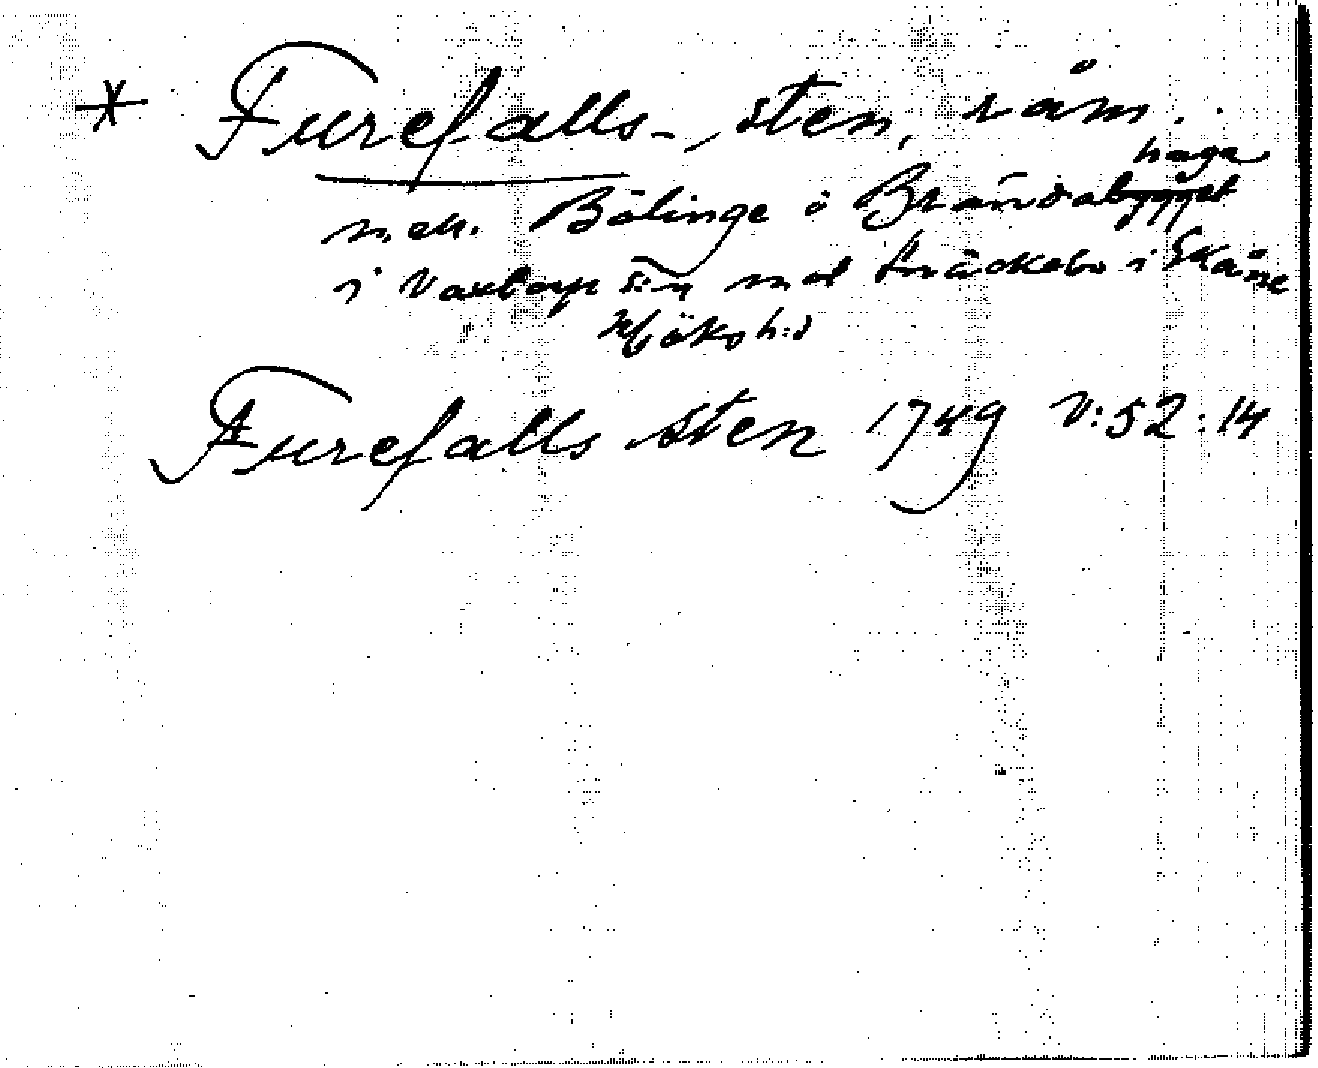 * Furefalls-, sten, råm.
mell. Bölinge o Brända­bygget haga
i Vaxtorp sn mot Bräckebo i Skåne
Höks h:d
Furefalls sten 1749 V:52:14